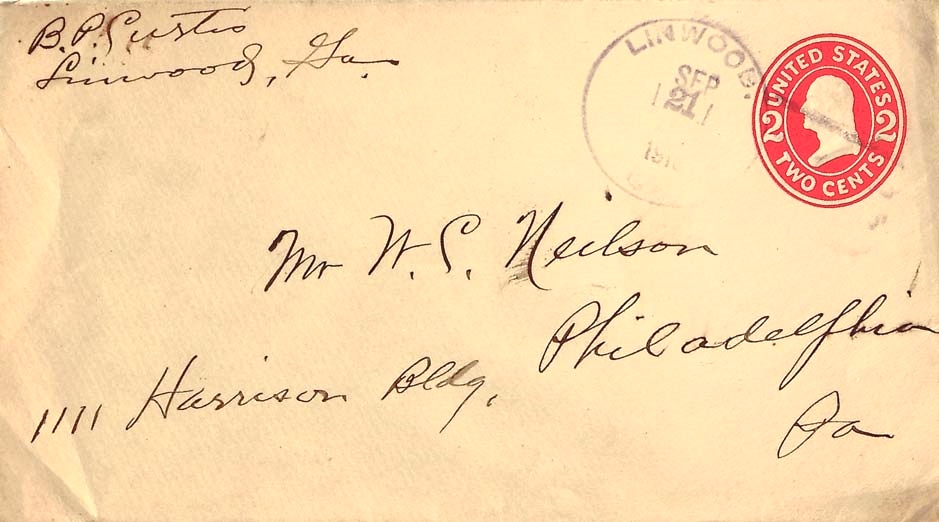 B.P. Curtis
Linwood, Ga.
LINWOOD,
SEP
21
UNITED STATES
2 2
TWO CENTS
Mr W. C. Neilson
Philadelphia
1111 Harrison Bldg,
Pa